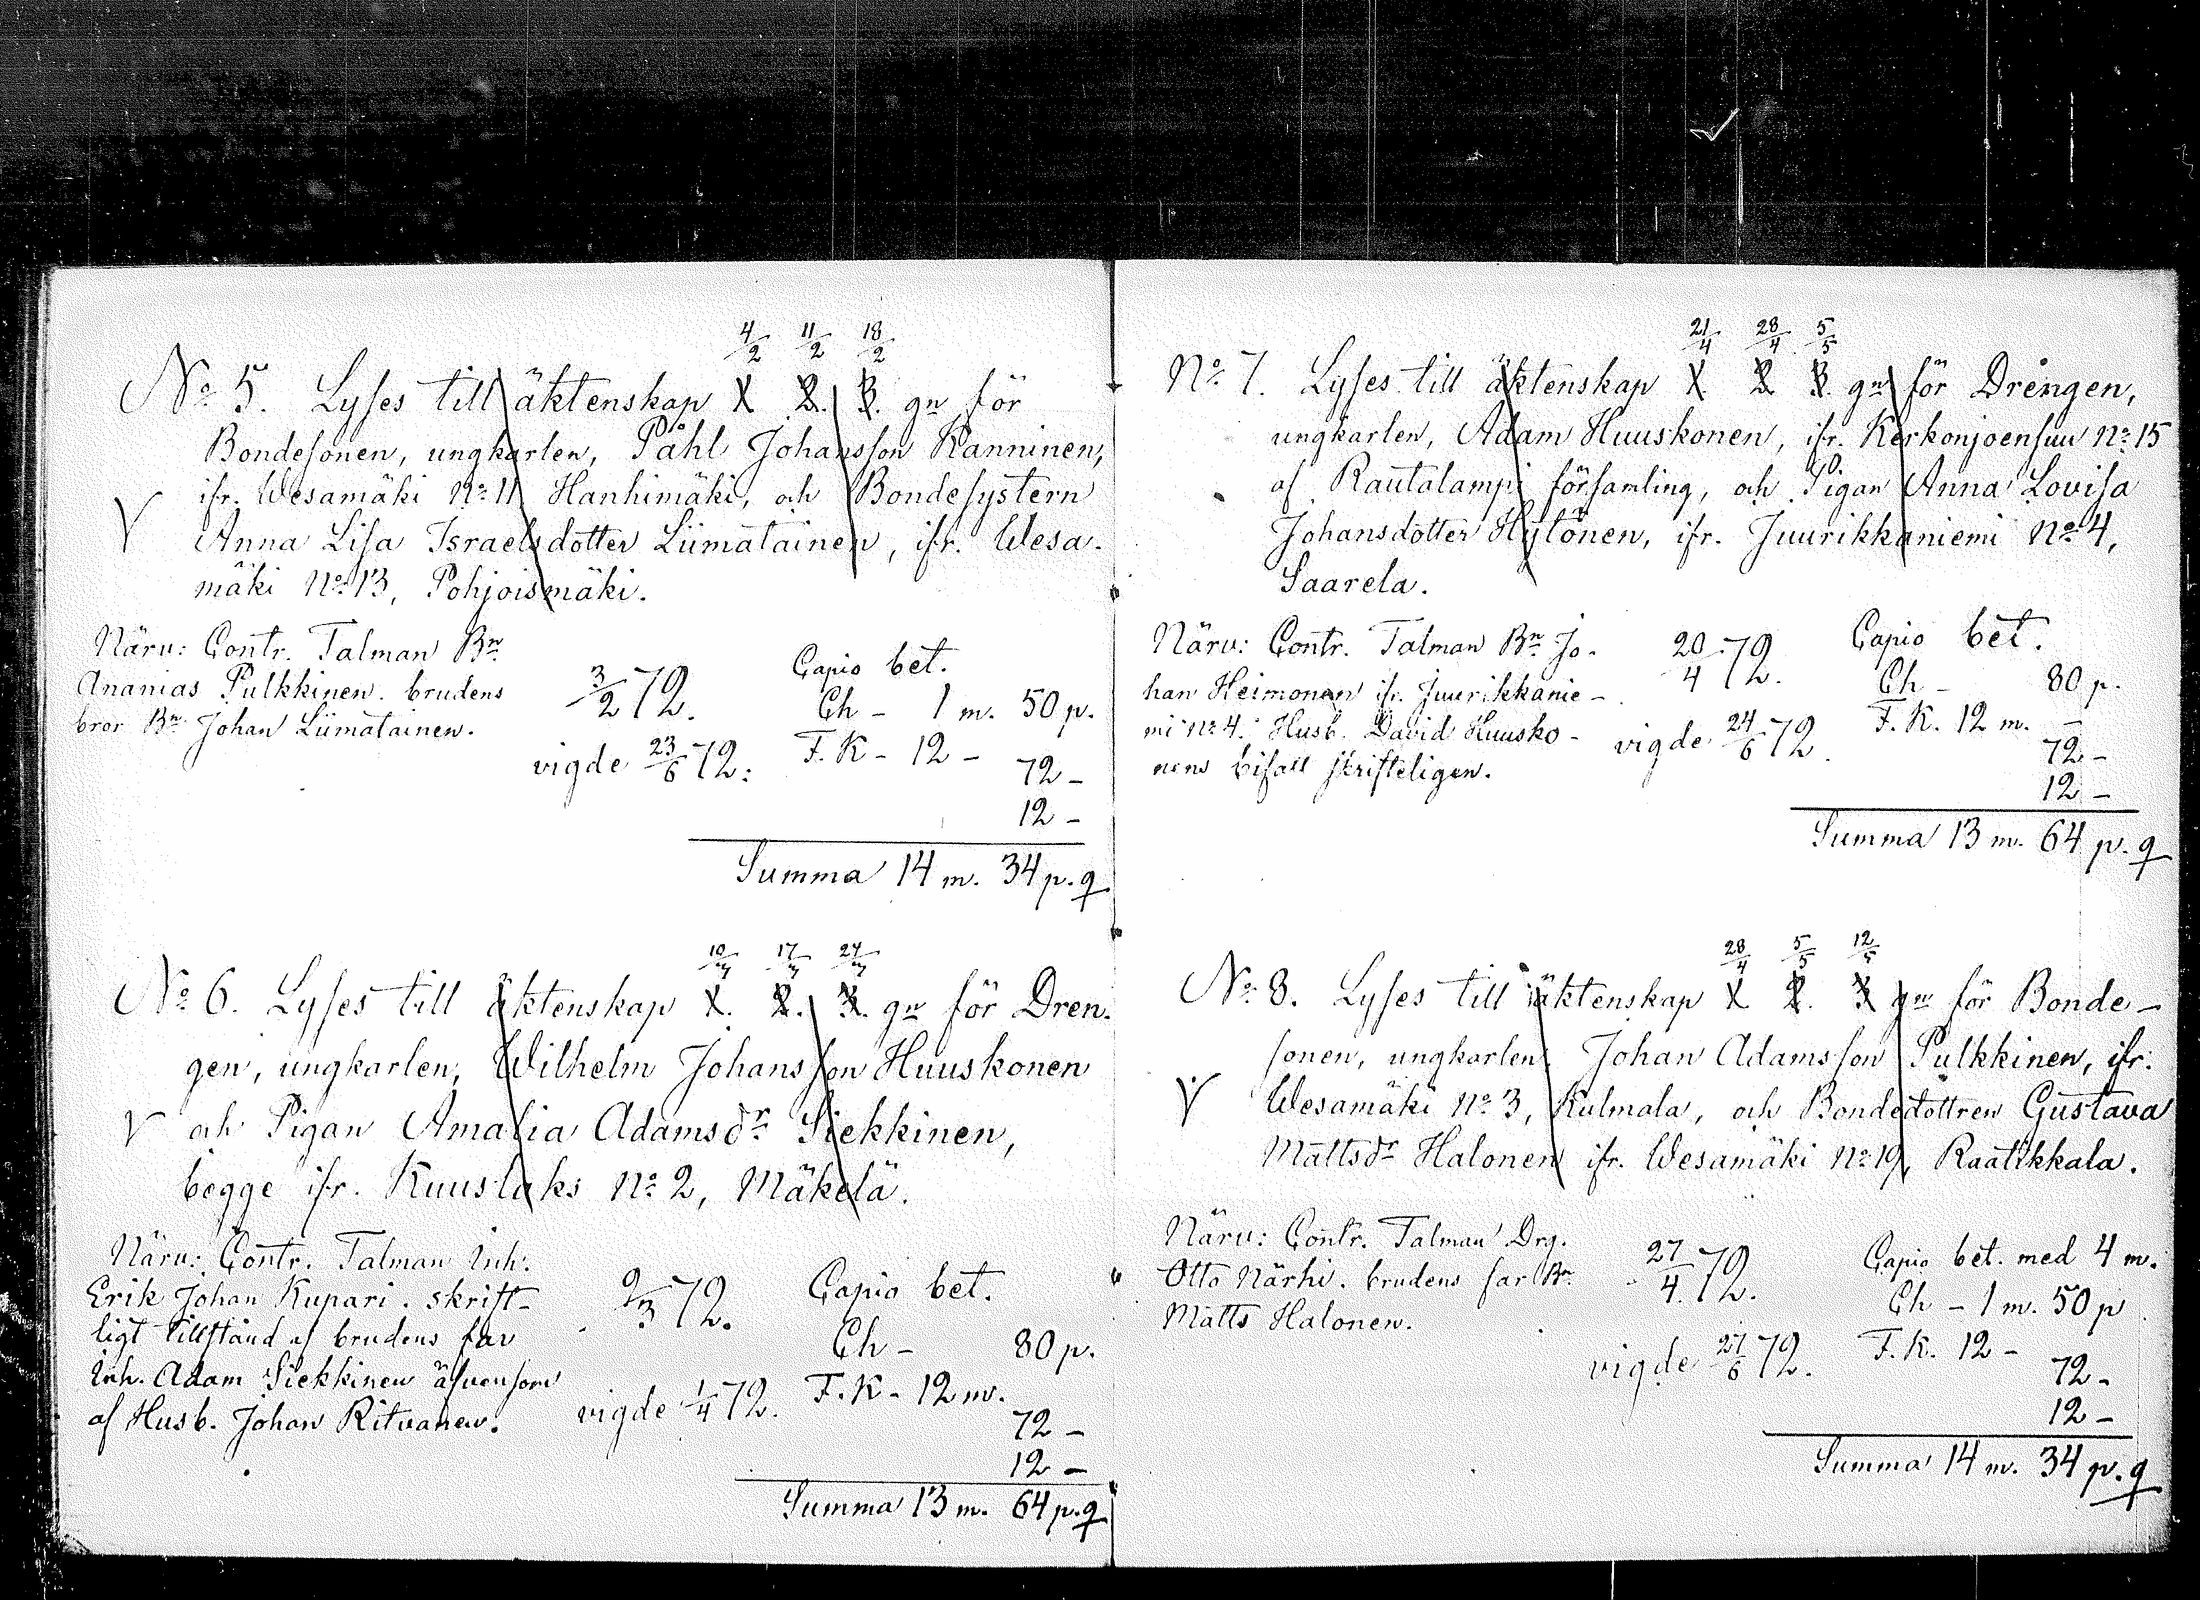 4/2 11/2 18/2
No 5. Lyses till äktenskap 1 2. 3. gn för
Bondesonen, ungkarlen, Påhl Johansson Ranninen,
ifr. Wesamäki No 11 Hanhimäki, och Bondesystern
V Anna Lisa Israelsdotter Liimatainen, ifr. Wesa-
mäki No 13, Pohjoismäki.
Närv: Contr. Talman Bn
Ananias Pulkkinen. brudens
bror Bn Johan Liimatainen.
3/2 72.
vigde 23/6 72.
Capio bet.
Ch - 1 m. 50 p.
F. K - 12 -
72 -
12 -
Summa 14 m. 34 p. q
10/3 17/3 24/3
No 6. Lyses till äktenskap 1. 2. 3. gn för Dren-
gen, ungkarlen, Wilhelm Johansson Huuskonen
V och Pigan Amalia Adamsdr Siekkinen,
begge ifr. Kuuslaks No 2, Mäkelä.
Närv: Contr. Talman Inh.
Erik Johan Kupari. skrift-
ligt tillstånd af brudens far
Inh. Adam Siekkinen äfvensom
af Husb. Johan Ritvanen.
9/3 72.
vigde 1/4 72.
Capio bet.
Ch - 80 p.
F. K - 12 m.
72 -
12 -
Summa 13 m. 64 p. q
21/4 28/4 5/5
No 7. Lyses till äktenskap 1 2 3 gn för Drengen,
ungkarlen, Adam Huuskonen, ifr. Kerkonjoensuu No 15
af Rautalampi församling, och Pigan Anna Lovisa
Johansdotter Hytönen, ifr. Juurikkaniemi No 4,
Saarela.
Närv: Contr. Talman Bn Jo-
han Heimonen ifr. Juurikkanie-
mi No 4. Husb. David Huusko-
nens bifall skrifteligen.
20/4 72.
vigde 24/6 72.
Capio bet.
Ch - 80 p.
F. K. 12 m. -
72 -
12 -
Summa 13 m. 64 p. q
28/4 5/5 12/5
No 8. Lyses till äktenskap 1 2. 3 gn för Bonde-
sonen, ungkarlen, Johan Adamsson Pulkkinen, ifr.
V Wesamäki No 3, Kulmala, och Bondedottren Gustava
Mattsdr Halonen ifr. Wesamäki No 19, Raatikkala.
Närv: Contr. Talman Drg.
Otto Närhi. brudens far Bn
Matts Halonen.
27/4 72.
vigde 27/6 72.
Capio bet. med 4 m.
Ch - 1 m. 50 p
F. K. 12 -
72 -
12 -
Summa 14 m. 34 p. q